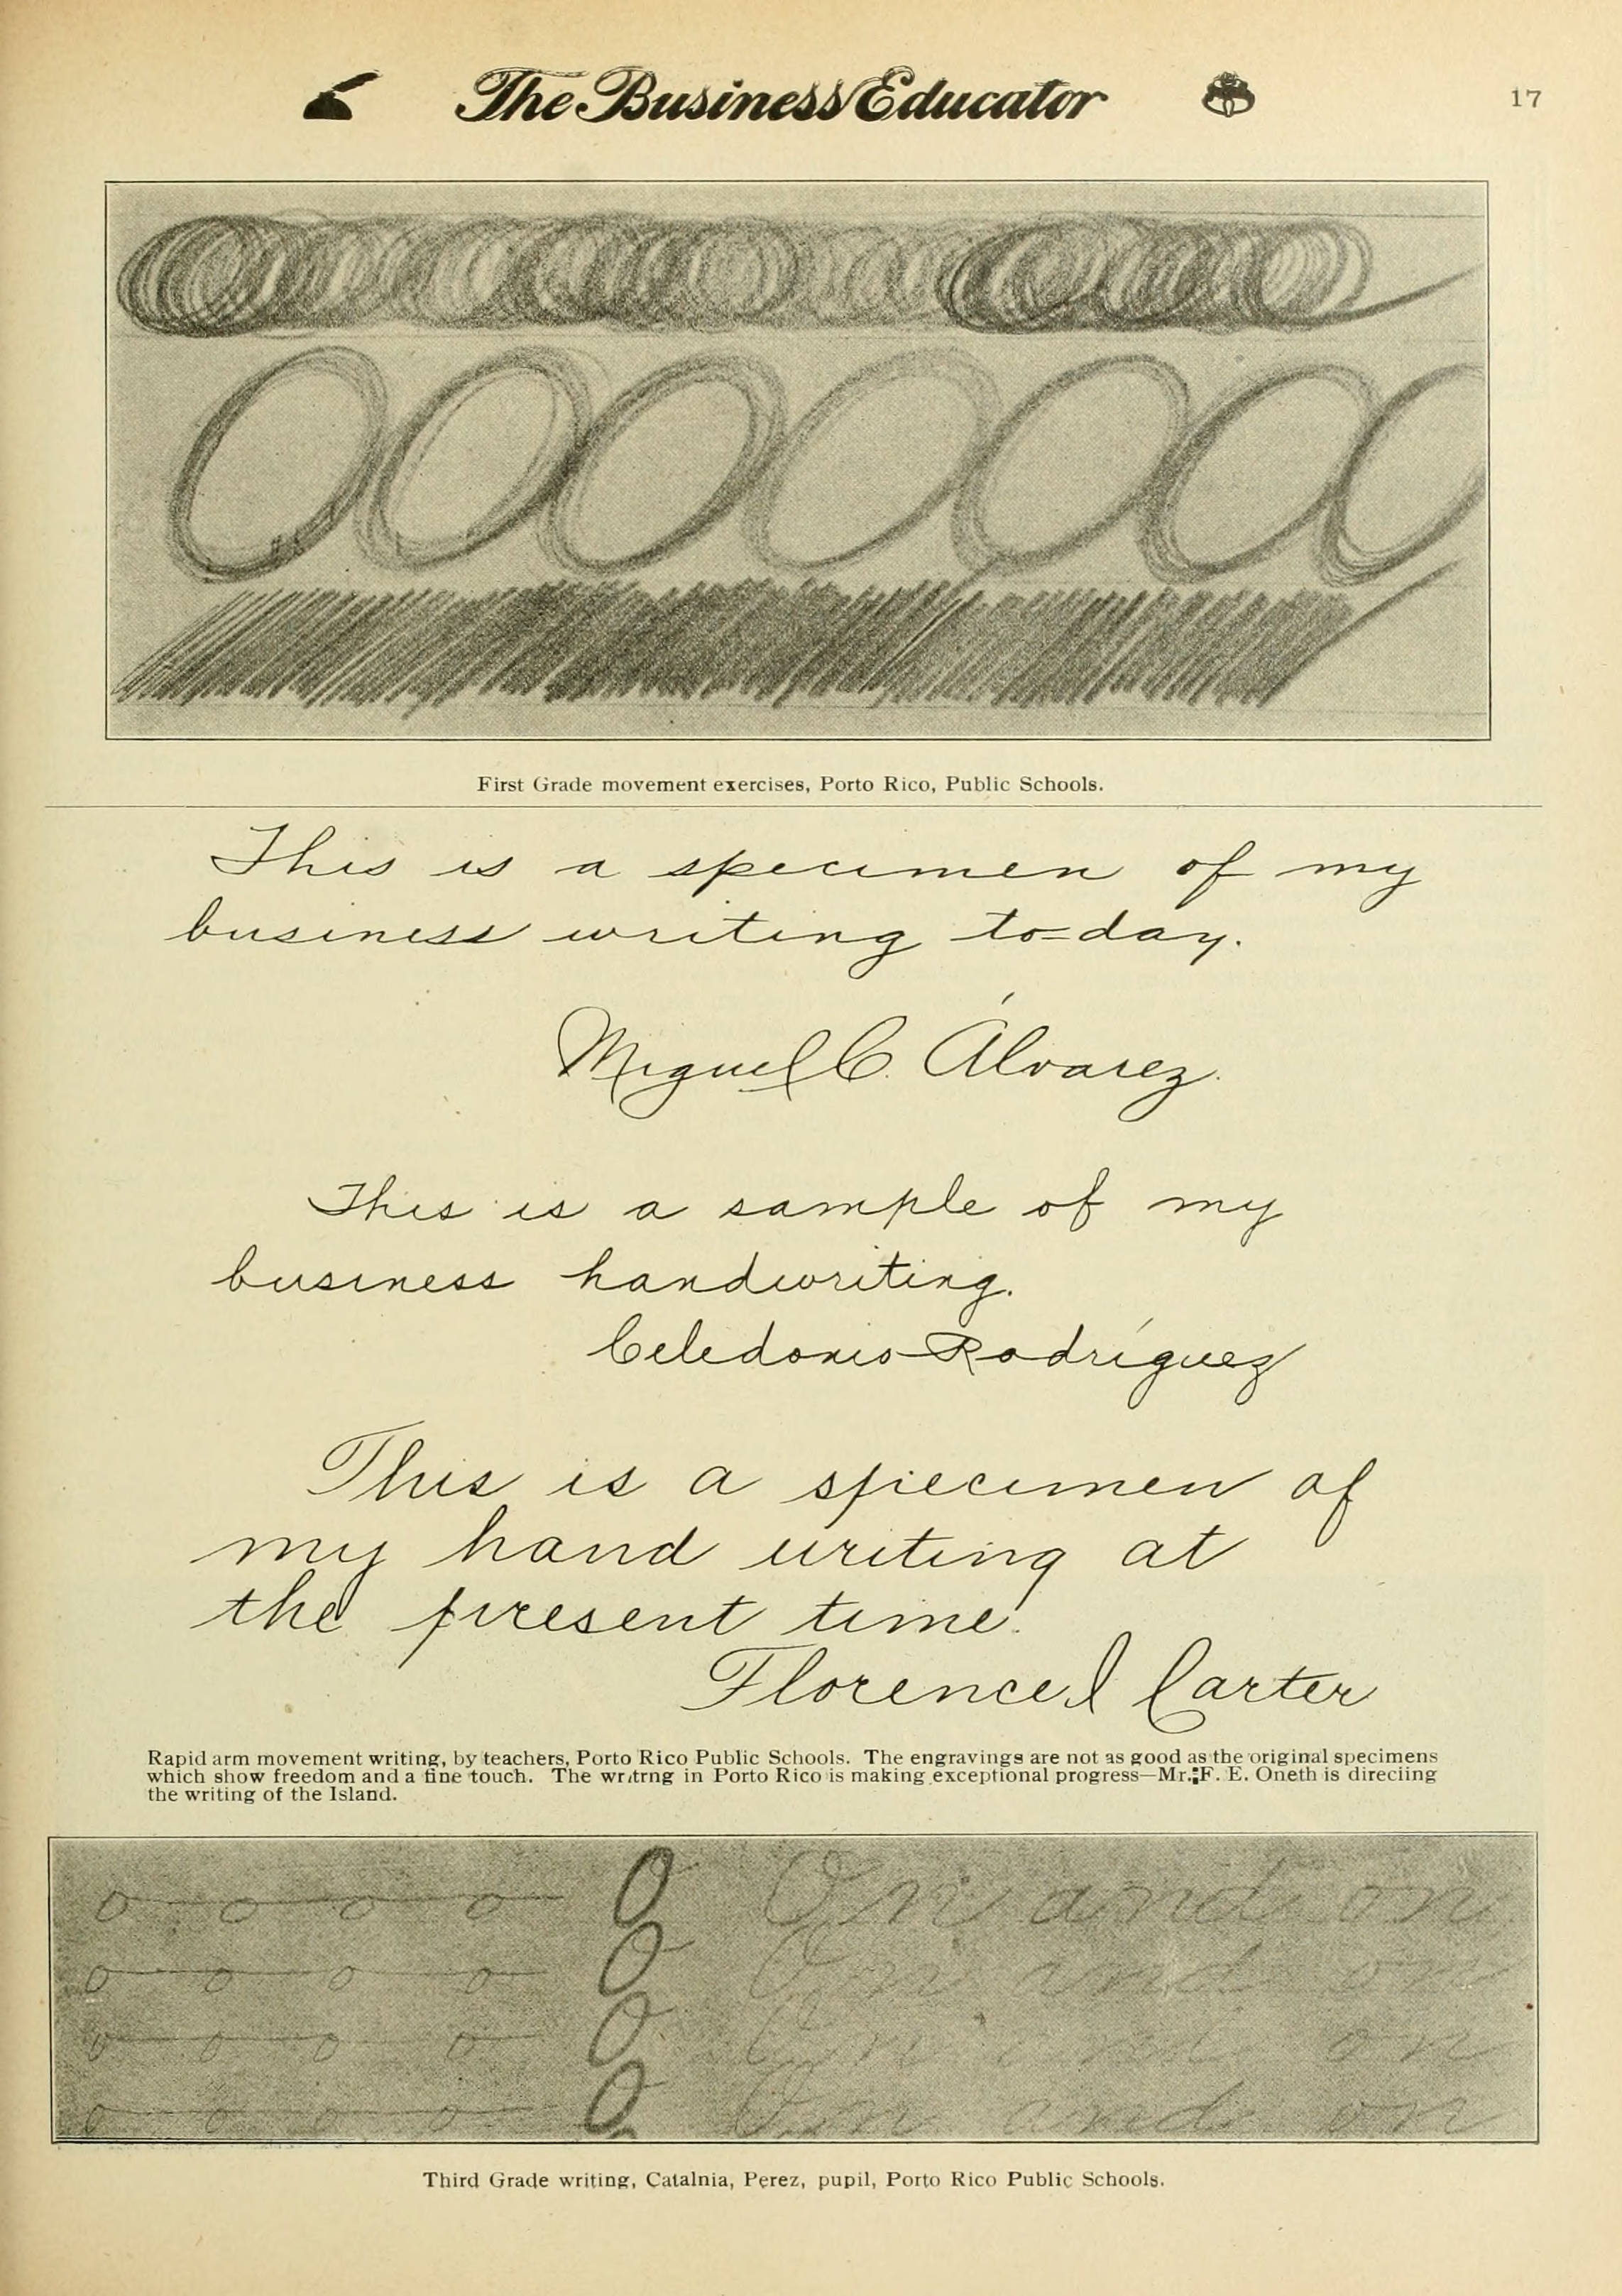 The Business Educator
17
First Grade movement exercises, Porto Rico, Public Schools.
This is a specimen of my
business writing to=day.
Miguel C. Álvarez.
This is a sample of my
business handwriting.
Celedonio Rodríguez
This is a specimen of
my hand writing at
the present time.
Florence I Carter
Rapid arm movement writing, by teachers, Porto Rico Public Schools. The engravings are not as good as the original specimens
which show freedom and a fine touch. The wr,trng in Porto Rico is making exceptional progress—Mr. F. E. Oneth is direciing
the writing of the Island.
o o o o O On and on
o o o o O On and on
o o o o O On and on
o o o o O On and on
Third Grade writing, Catalnia, Perez, pupil, Porto Rico Public Schools.